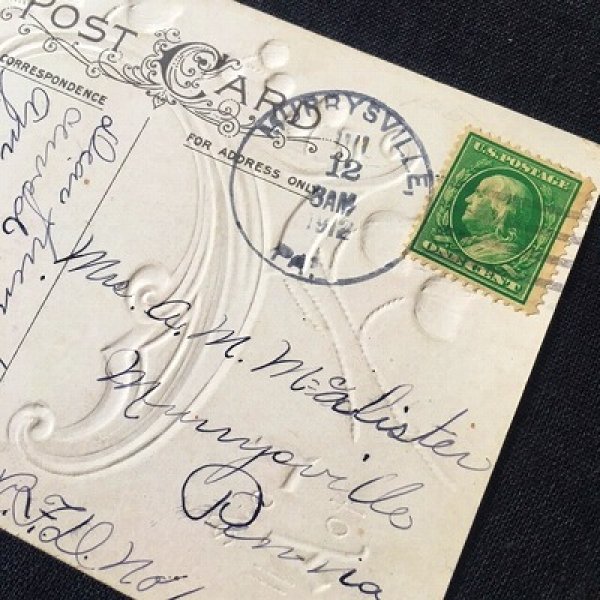 POST CARD
CORRESPONDENCE
FOR ADDRESS ONLY
MURRYSVILLE,
12
8AM
1912
PA.
U.S. POSTAGE
ONE CENT
Dear
Mrs. A. M. McAlister
Murrysville
Penna
R.F.D. No 1